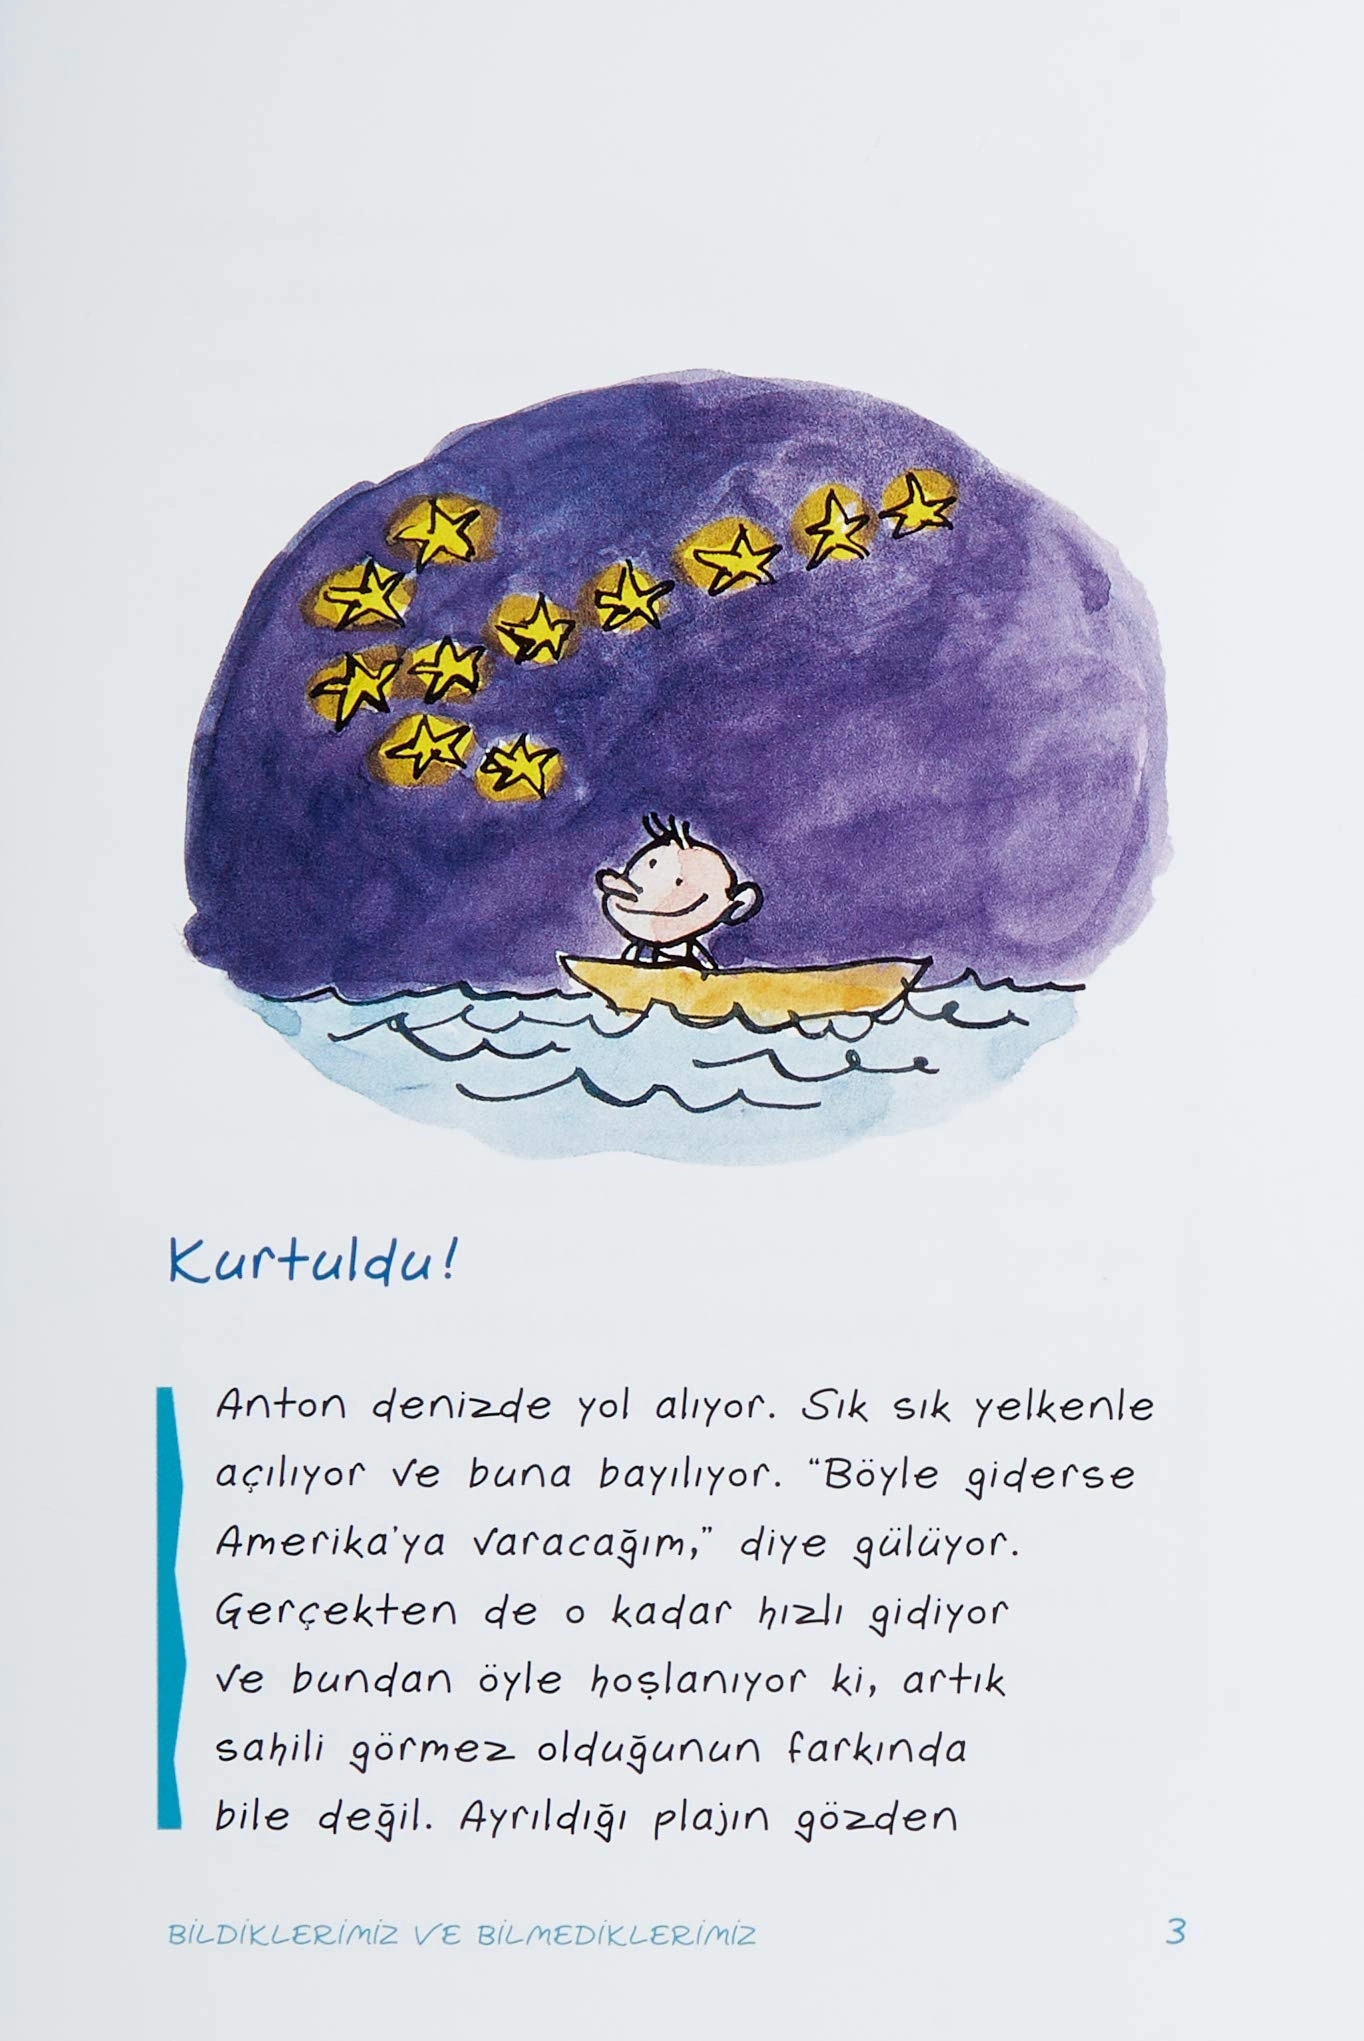 Kurtuldu!
Anton denizde yol alıyor. Sık sık yelkenle
açılıyor ve buna bayılıyor. “Böyle giderse
Amerika'ya varacağım,” diye gülüyor.
Gerçekten de o kadar hızlı gidiyor
ve bundan öyle hoşlanıyor ki, artık
sahili görmez olduğunun farkında
bile değil. Ayrıldığı plajın gözden
BİLDİKLERİMİZ VE BİLMEDİKLERİMİZ 3